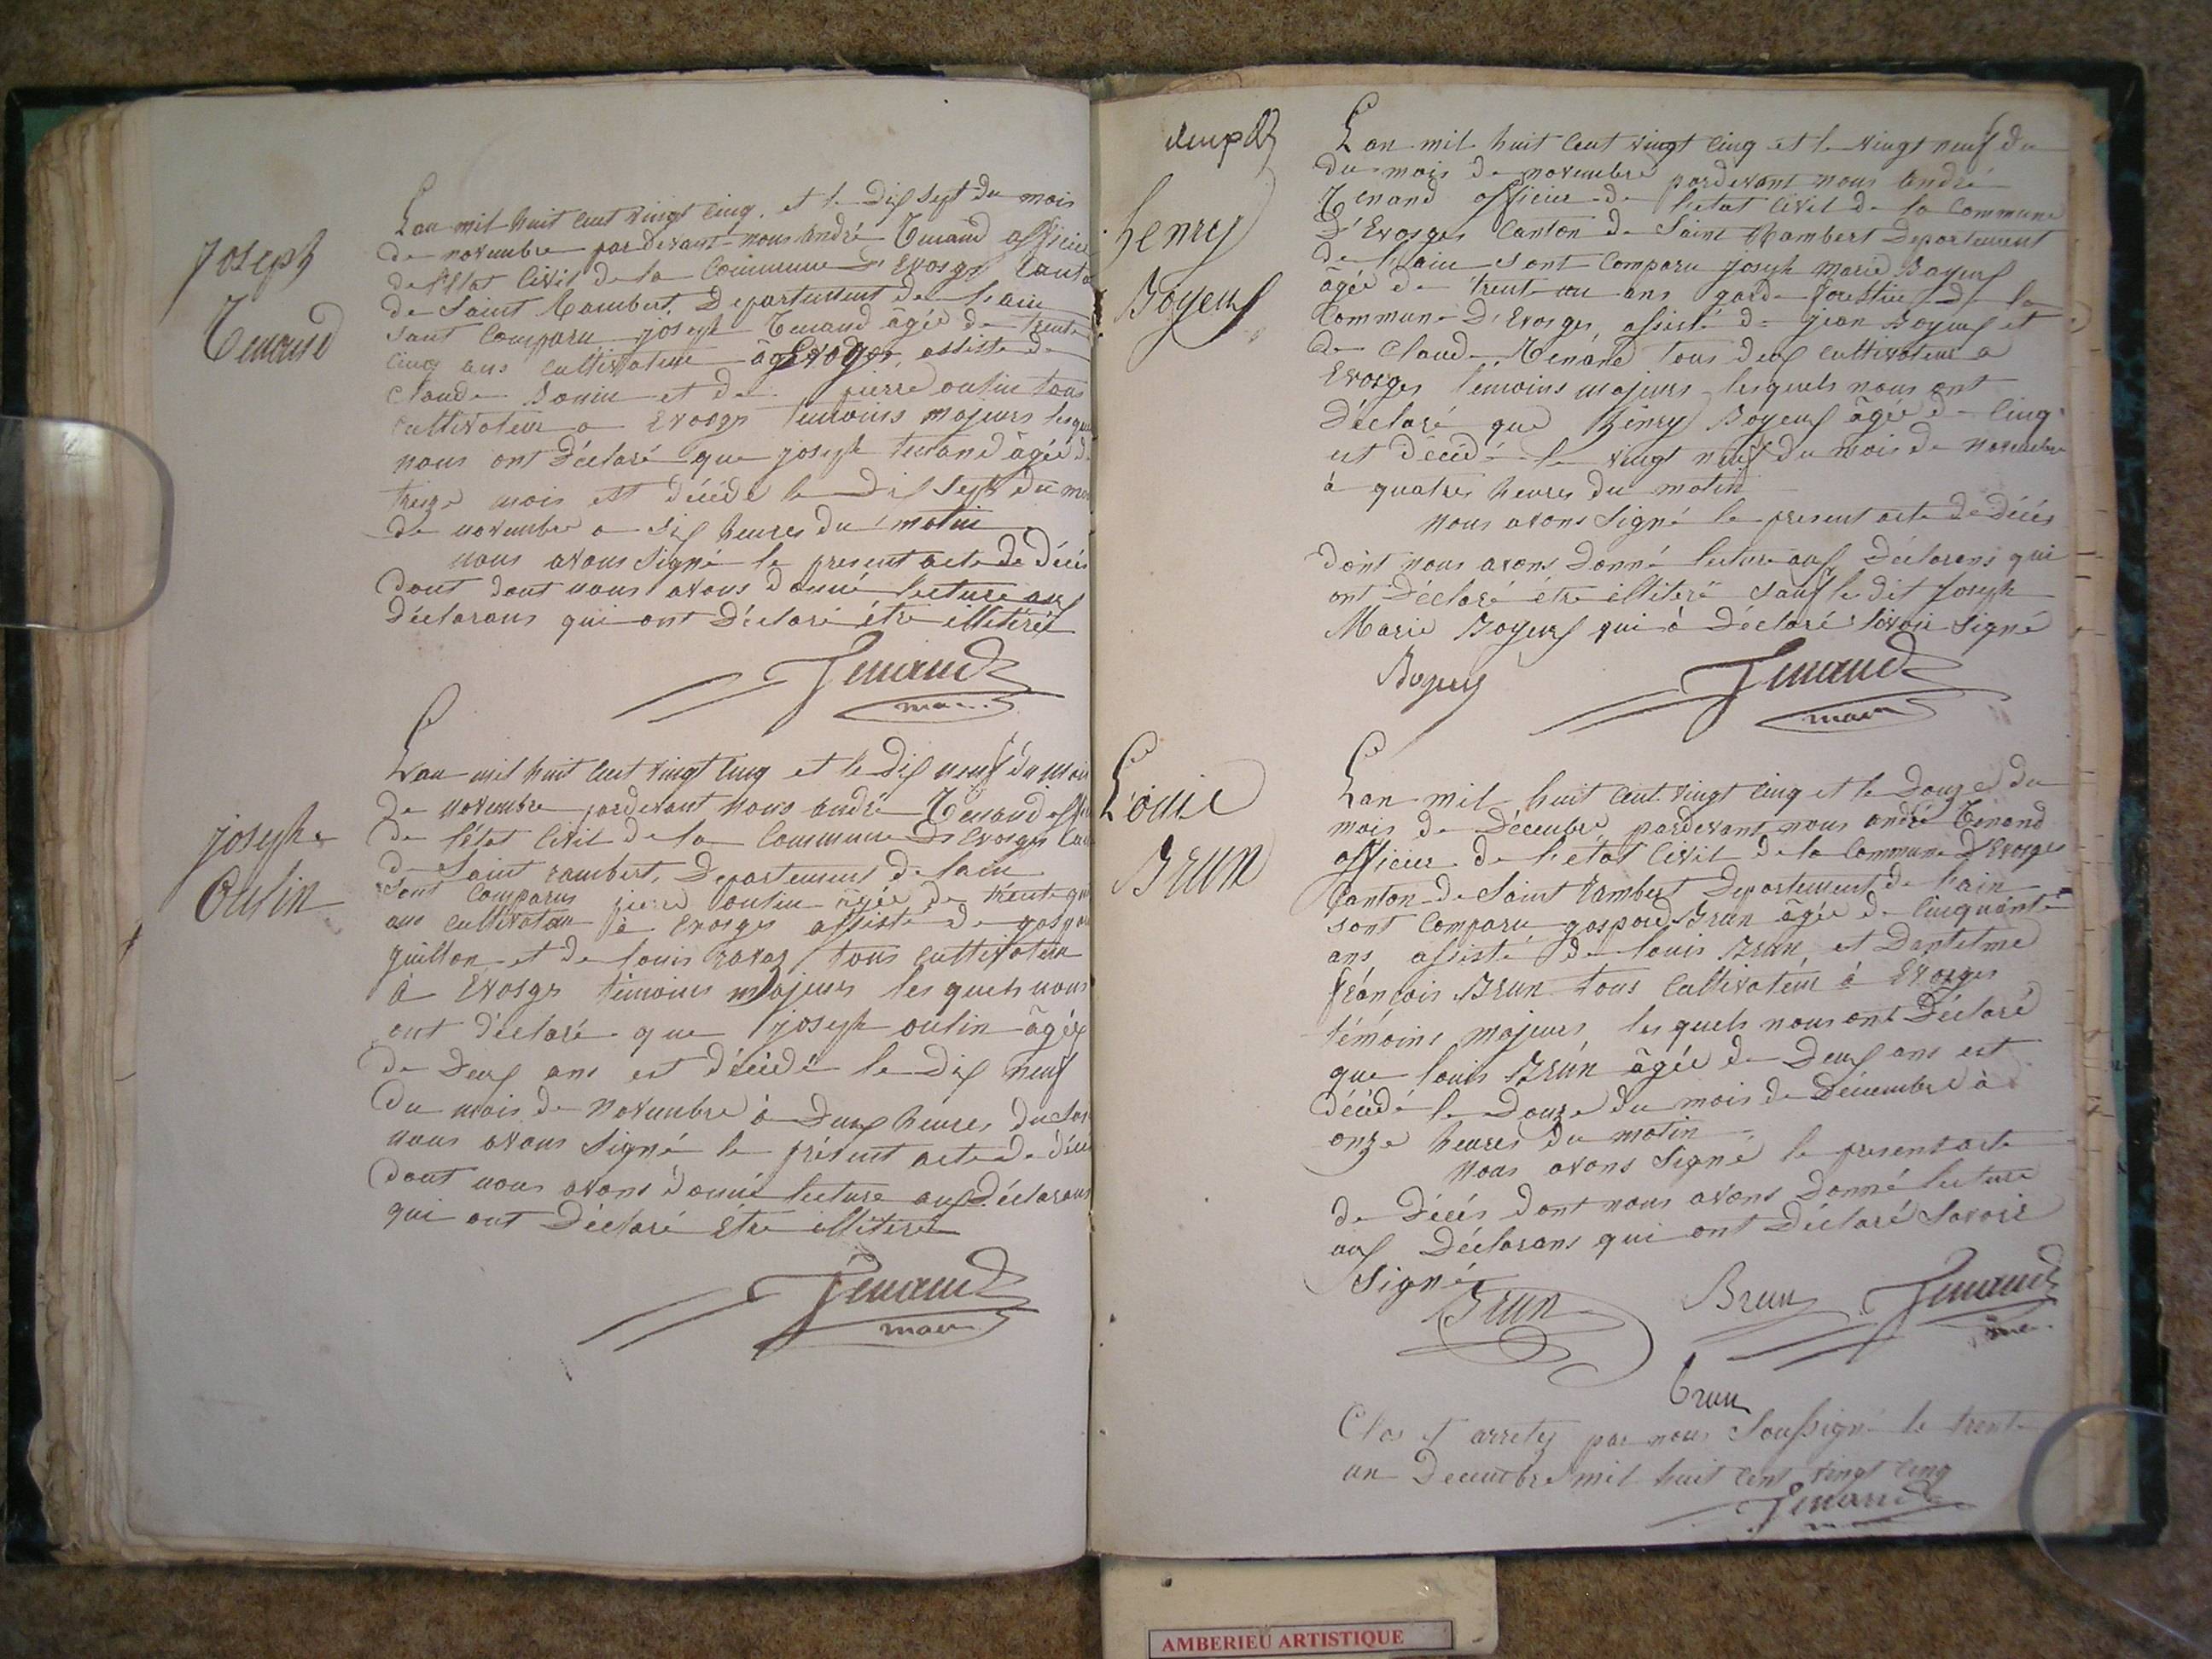 Joseph
Tenand
Lan mil huit cent vingt cinq. et le dix sept du mois
de novembre pardevant nous andré Tenand officier
de l'Etat Civil de la Commune d'Evosges Canto
de Saint Rambert, Departement de lain
sont Comparu joseph Tenand âgée de trente
cinq ans cultivateur à Evosges, assisté de
claude Bonin et de pierre oulin tous
cultivateur a Evosges temoins majeurs lesque
nous ont déclaré que joseph tenand âgée d
treize mois est décédé le dix sept du moi
de novembre a six heures du matin
nous avons signé le present acte de décè
dont dont nous avons donné lecture aux
déclarans qui ont déclaré être illitéré
Tenand
maire
joseph
Oulin
Lan mil huit cent vingt cinq et le dix neuf du moi
de novembre pardevant nous andré Tenand offi
de l'état Civil de la Commune d'Evosges Can
de Saint rambert, Departement de lain
sont Comparus pierre oulin âgée de trente qu
ans cultivateur à Evosges assisté de gaspa
guillon et de louis ravaz tous cultivateur
à Evosges témoins majeurs lesquels nous
ont déclaré que joseph oulin âgée
de deux ans est décédé le dix neuf
du mois de Novembre à deux heures du soi
nous avons signé le présent acte de décè
dont nous avons donné lecture aux déclarans
qui ont déclaré être illitéré
Tenand
maire
henry
Boyeux
Lan mil huit cent vingt cinq et le vingt neuf du
du mois de novembre pardevant nous André
Tenand officier de l'etat Civil de la Commune
D'Evosges Canton de Saint Rambert Departement
de l'ain sont Comparu Joseph Marie Boyeux
âgée de trente un ans garde forestier de la
Commune D'Evosges, assisté de jean Boyeux et
de Claude Tenand tous deux cultivateur a
Evosges témoins majeurs lesquels nous ont
déclaré que henry Boyeux âgée de cinq
est décédé le vingt neuf du mois de novembre
à quatres heures du matin
nous avons signé le present acte de décés
dont nous avons donné lecture aux déclarans qui
ont déclaré être illitéré sauf le dit Joseph
Marie Boyeux qui à déclaré savoir signé
Boyeux
Tenand
maire
Louie
Brun
Lan mil huit cent vingt cinq et le douze du
mois de décembre pardevant nous andré Tenand
officier de l'etat Civil de la Commune d'Evosges
Canton de Saint rambert Departement de l'ain
sont Comparu gaspard Brun âgée de cinquante
ans assisté de louis Brun, et Dantelme
françois Brun tous cultivateur à Evosges
témoins majeurs, lesquels nous ont déclaré
que louis Brun âgée de deux ans est
décédé le douze du mois de décembre à
onze heures du matin
nous avons signé le present acte
de décés dont nous avons donné lecture
aux déclarans qui ont déclaré savoir
signé
Brun
Brun
Tenand
Brun
Clos et arretez par nous soussigné le trente
un Decembre mil huit cent vingt cinq
Tenand
AMBERIEU ARTISTIQUE